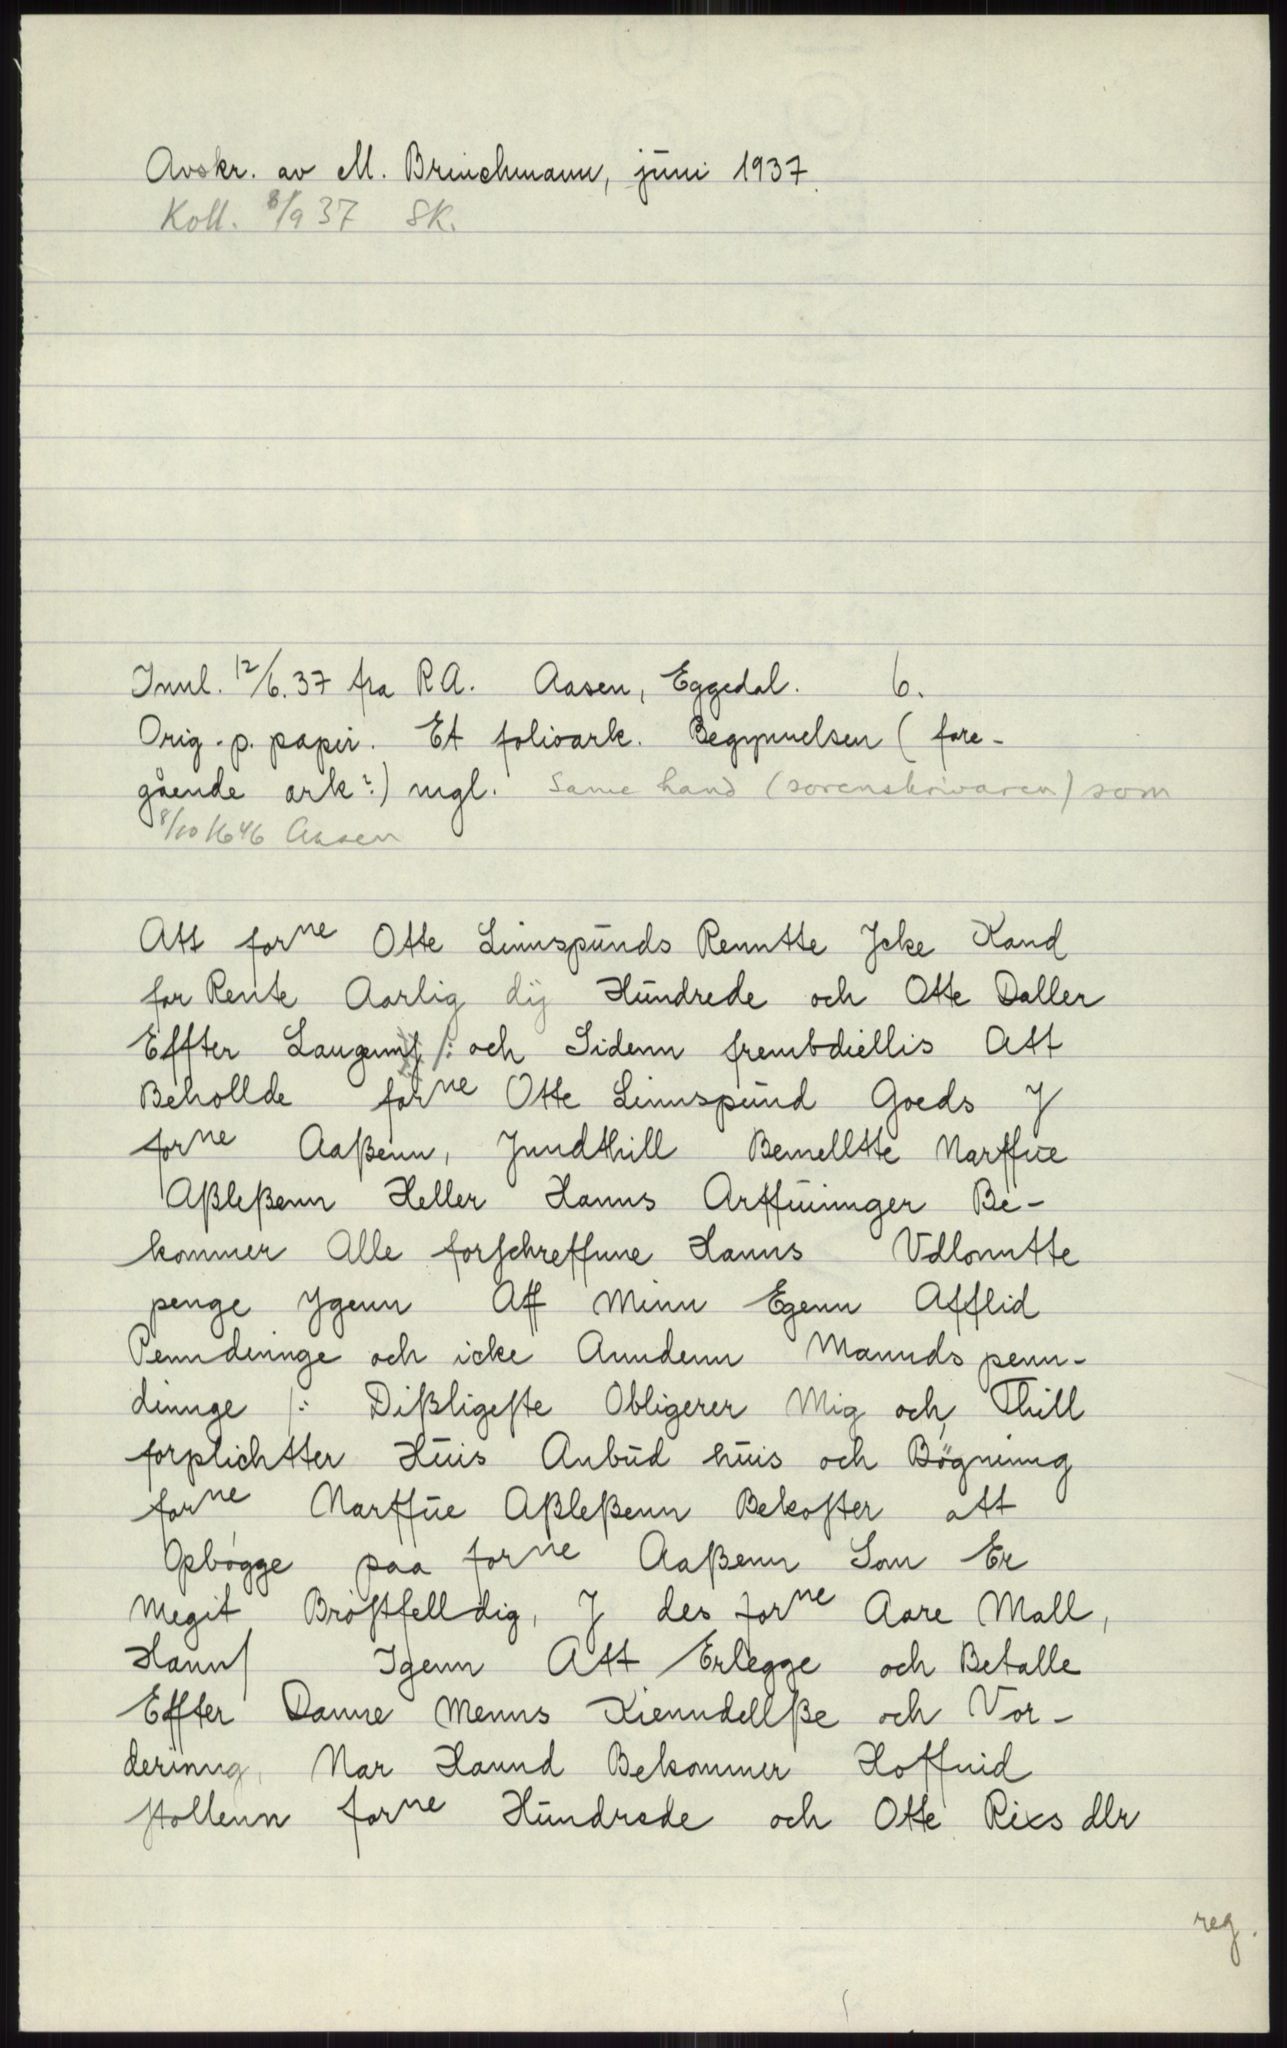 Avskr. av M. Brinchmann, juni 1937.
Koll. 8/9 37 SK.
Innl. 12/6. 37 fra R.A. Aasen, Eggedal. 6.
Orig. p. papir. Et folioark. Begynnelsen (fore-
gående ark?) mgl. Same hand (sorenskrivaren) som
8/10 1646 Aasen
Att forne Otte Linnspunds Renntte Jcke Kand
for Rente Aarlig dij Hundrede och Otte Daller
Effter Laugenn /: och Sidenn frembdiellis Att
Behollde forne Otte Linnspund Goeds J
forne Aaßenn, Jnndthill Bemelltte Narffue
Aßleßenn Heller Hanns Arffuinnger Be-
kommer Alle forschreffune Hanns Vdlonntte
penge Ygenn Aff Minn Egenn Afflid
Penndinnge och icke Anndenn Mannds penn-
dinnge /: Dißligeste Obligerer Mig och Thill
forplichtter Huis Anbud huis och Bögninng
forne Narffue Aßleßenn Bekoster att
Opbögge paa forne Aaßenn Som Er
Megit Bröstfelldig, J des forne Aare Mall,
Hanns Igenn Att Erlegge och Betalle
Effter Danne Menns Kienndellße och Vor-
derinng, Nar Hannd Bekommer Hoffuid
stollenn forne Hundrede och Otte Rixs dlr
reg.